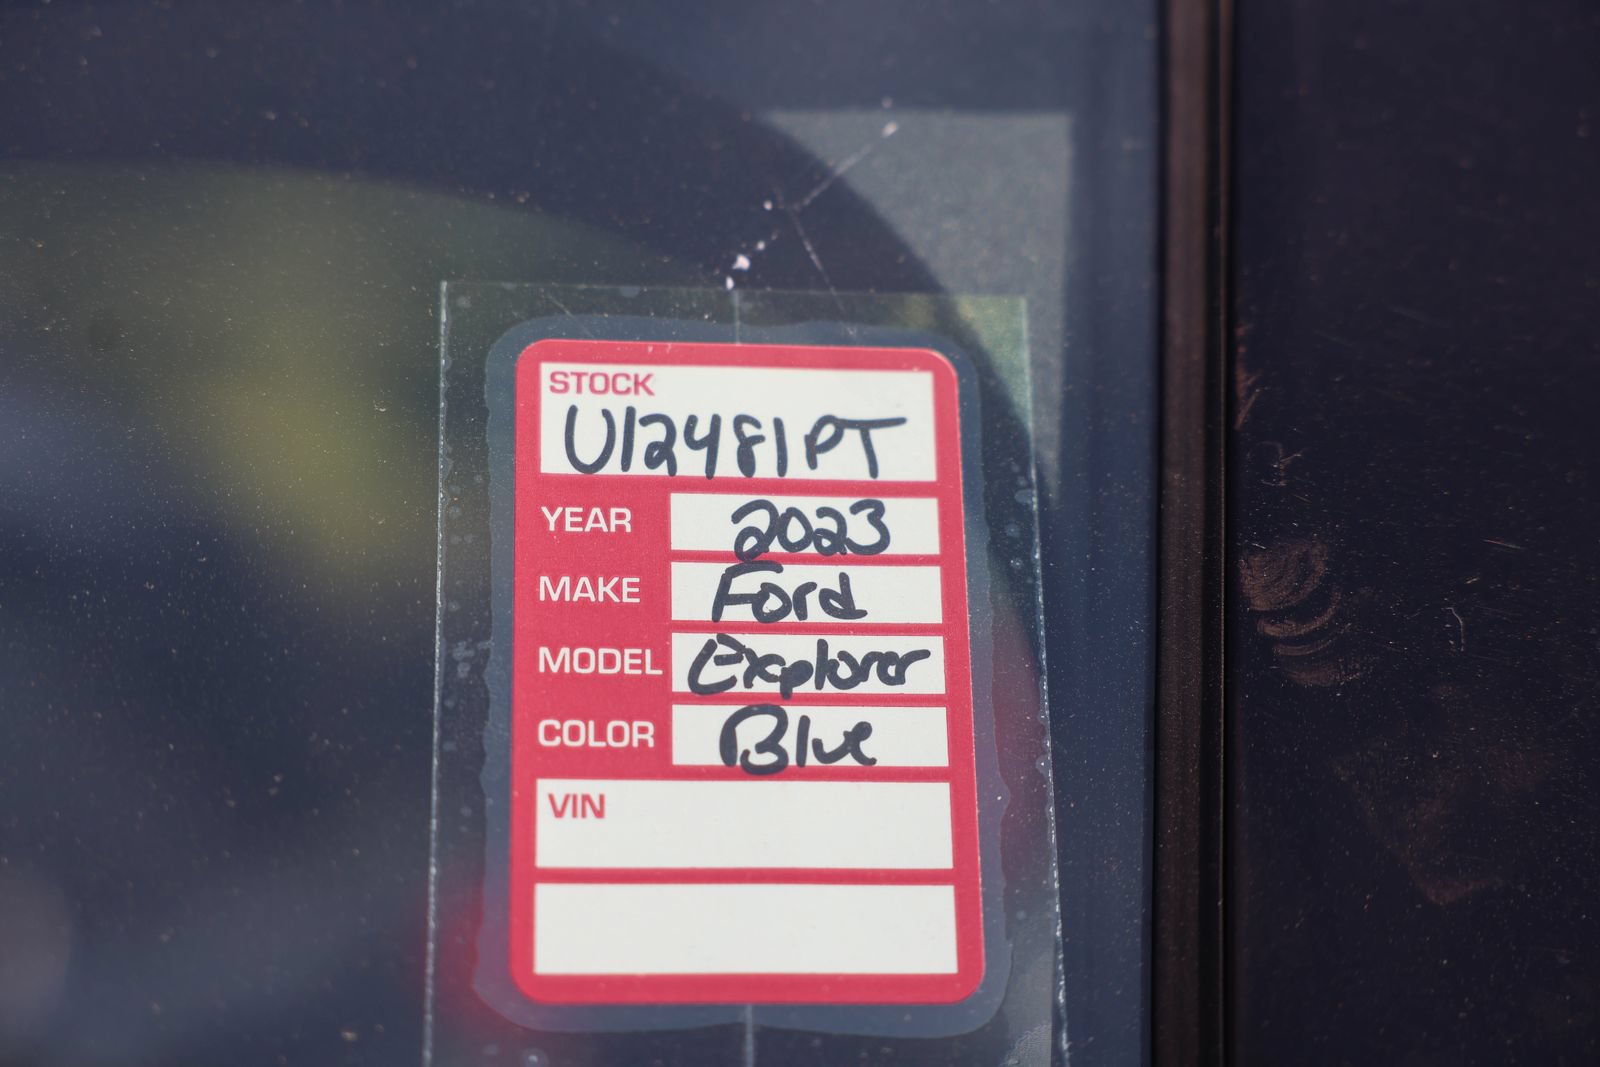 STOCK
U12481PT
YEAR 2023
MAKE Ford
MODEL Explorer
COLOR Blue
VIN